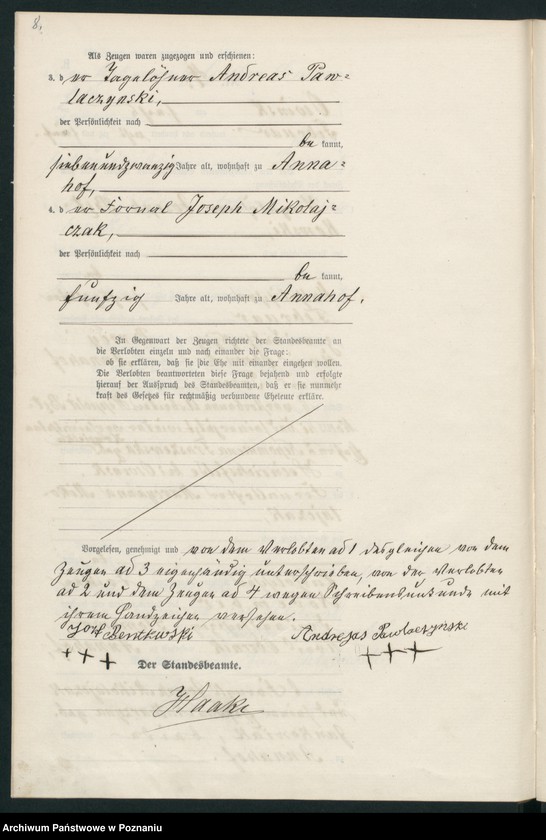 8.
Als Zeugen waren zugezogen und erschienen:
3. der Tagelöhner Andreas Paw=
laczynski,
der Persönlichkeit nach
bekannt,
siebenundzwanzig Jahre alt, wohnhaft zu Anna=
hof,
4. der Fornal Joseph Mikolaj=
czak,
der Persönlichkeit nach
bekannt,
funfzig Jahre alt, wohnhaft zu Annahof.
In Gegenwart der Zeugen richtete der Standesbeamte an
die Verlobten einzeln und nach einander die Frage:
ob sie erklären, daß sie die Ehe mit einander eingehen wollen.
Die Verlobten beantworteten diese Frage bejahend und erfolgte
hierauf der Ausspruch des Standesbeamten, daß er sie nunmehr
kraft des Gesetzes für rechtmäßig verbundene Eheleute erkläre.
Vorgelesen, genehmigt und von dem Verlobten ad 1 desgleichen von dem
Zeugen ad 3 eigenhändig unterschrieben, von der Verlobten
ad 2 und dem Zeugen ad 4 wegen Schreibensunkunde mit
ihrem Handzeichen versehen.
Bentkowski Andrejas Pawlaczyński
+++ +++
Der Standesbeamte.
Haake
Archiwum Państwowe w Poznaniu